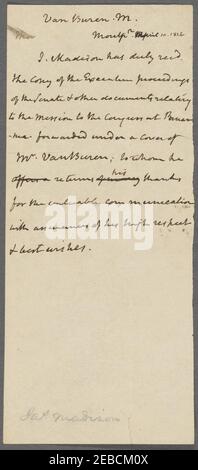 Van Buren. M.
Montpr April 10. 1826
J. Madison has duly recd.
the Copy of the Executive proceedings
of the Senate & other documents relating
to the Mission to the Congress at Pana-
-ma forwarded under a Cover of
Mr. Van Buren; to whom he
returns his thanks
for the valuable communication
with assurances of his high respect
& best wishes.
Jas. Madison
alamy
Image ID: 2EBCM0X
www.alamy.com